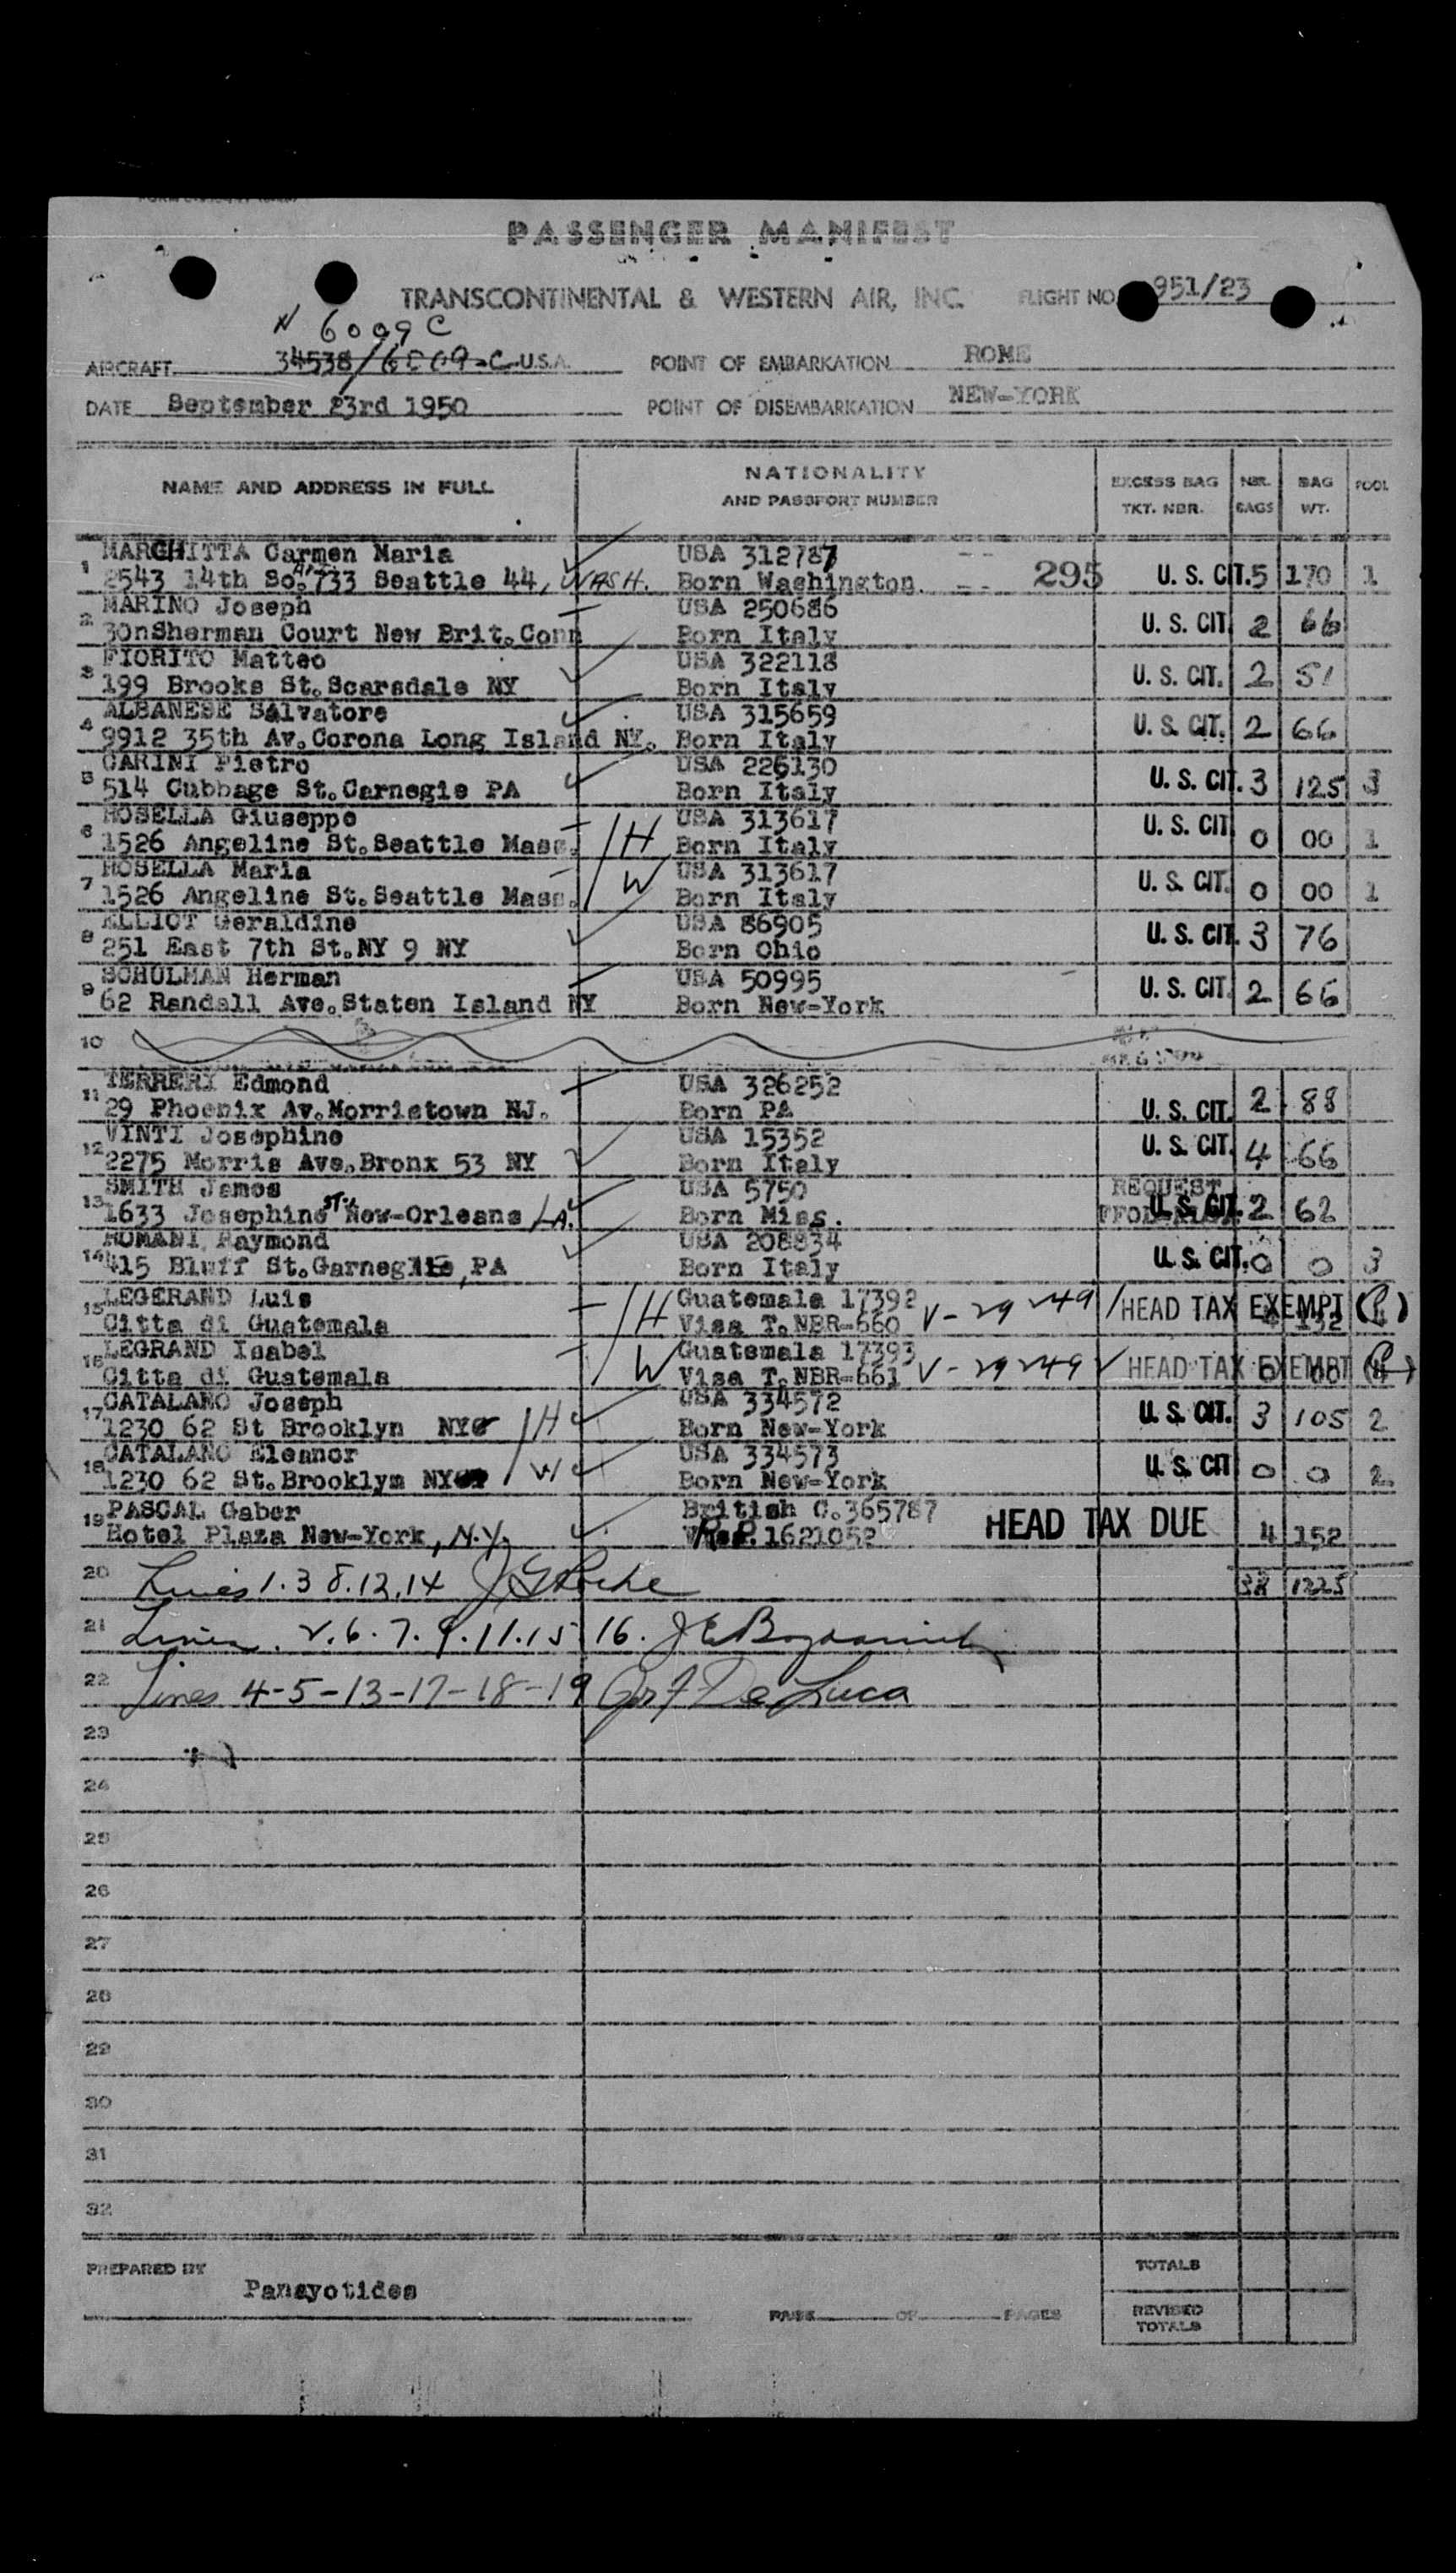 PASSENGER MANIFEST
TRANSCONTINENTAL & WESTERN AIR, INC. FLIGHT NO. 951/23
N 6009C
AIRCRAFT 34538/6009-C U.S.A. POINT OF EMBARKATION ROME
DATE September 23rd 1950 POINT OF DISEMBARKATION NEW-YORK
NAME AND ADDRESS IN FULL NATIONALITY AND PASSPORT NUMBER EXCESS BAG TKT. NBR. NBR. BAGS BAG WT. POOL
1 MARCHITTA Carmen Maria USA 312787
2543 14th So. Apt. 733 Seattle 44, WASH. Born Washington. 295 U. S. CIT. 5 170 1
2 MARINO Joseph USA 250686
30nSherman Court New Brit.Conn Born Italy U. S. CIT. 2 66
3 FIORITO Matteo USA 322118
199 Brooks St.Scarsdale NY Born Italy U. S. CIT. 2 51
4 ALBANESE Salvatore USA 315659
9912 35th Av.Corona Long Island NY. Born Italy U. S. CIT. 2 66
5 CARINI Pietro USA 226130
514 Cubbage St.Carnegie PA Born Italy U. S. CIT. 3 125 3
6 ROSELLA Giuseppe USA 313617
1526 Angeline St.Seattle Mass. H Born Italy U. S. CIT. 0 00 1
7 ROSELLA Maria USA 313617
1526 Angeline St.Seattle Mass. W Born Italy U. S. CIT. 0 00 1
8 ELLIOT Geraldine USA 86905
251 East 7th St.NY 9 NY Born Ohio U. S. CIT. 3 76
9 SCHULMAN Herman USA 50995
62 Randall Ave.Staten Island NY Born New-York U. S. CIT. 2 66
10
11 TERRERI Edmond USA 326252
29 Phoenix Av.Morristown NJ. Born PA U. S. CIT. 2 88
12 VINTI Josephine USA 15352
2275 Morris Ave.Bronx 53 NY Born Italy U. S. CIT. 4 66
13 SMITH James USA 5750 REQUEST
1633 Josephine ST. New-Orleans LA. Born Miss. U. S. CIT. 2 62
14 ROMANI Raymond USA 208834
415 Bluff St.Garnegie, PA Born Italy U. S. CIT. 0 0 3
15 LEGERAND Luis Guatemala 17392
Citta di Guatemala H Visa T.NBR-660 V-29249 HEAD TAX EXEMPT 132
16 LEGRAND Isabel Guatemala 17393
Citta di Guatemala W Visa T.NBR-661 V-29249 HEAD TAX EXEMPT 0 00
17 CATALANO Joseph USA 334572
1230 62 St Brooklyn NY H Born New-York U. S. CIT. 3 105 2
18 CATALANO Eleanor USA 334573
1230 62 St.Brooklym NY W Born New-York U. S. CIT 0 0 2
19 PASCAL Gabor British C.365787
Hotel Plaza New-York, N.Y. R.P. 1621052 HEAD TAX DUE 4 152
20 Lines 1.3 8.12.14 38 1225
21 Lines. 2.6.7.9.11.15 16.
22 Lines 4-5-13-17-18-19 De Luca
23
24
25
26
27
28
29
30
31
32
PREPARED BY Panayotides
PAGE OF PAGES
TOTALS
REVISED TOTALS